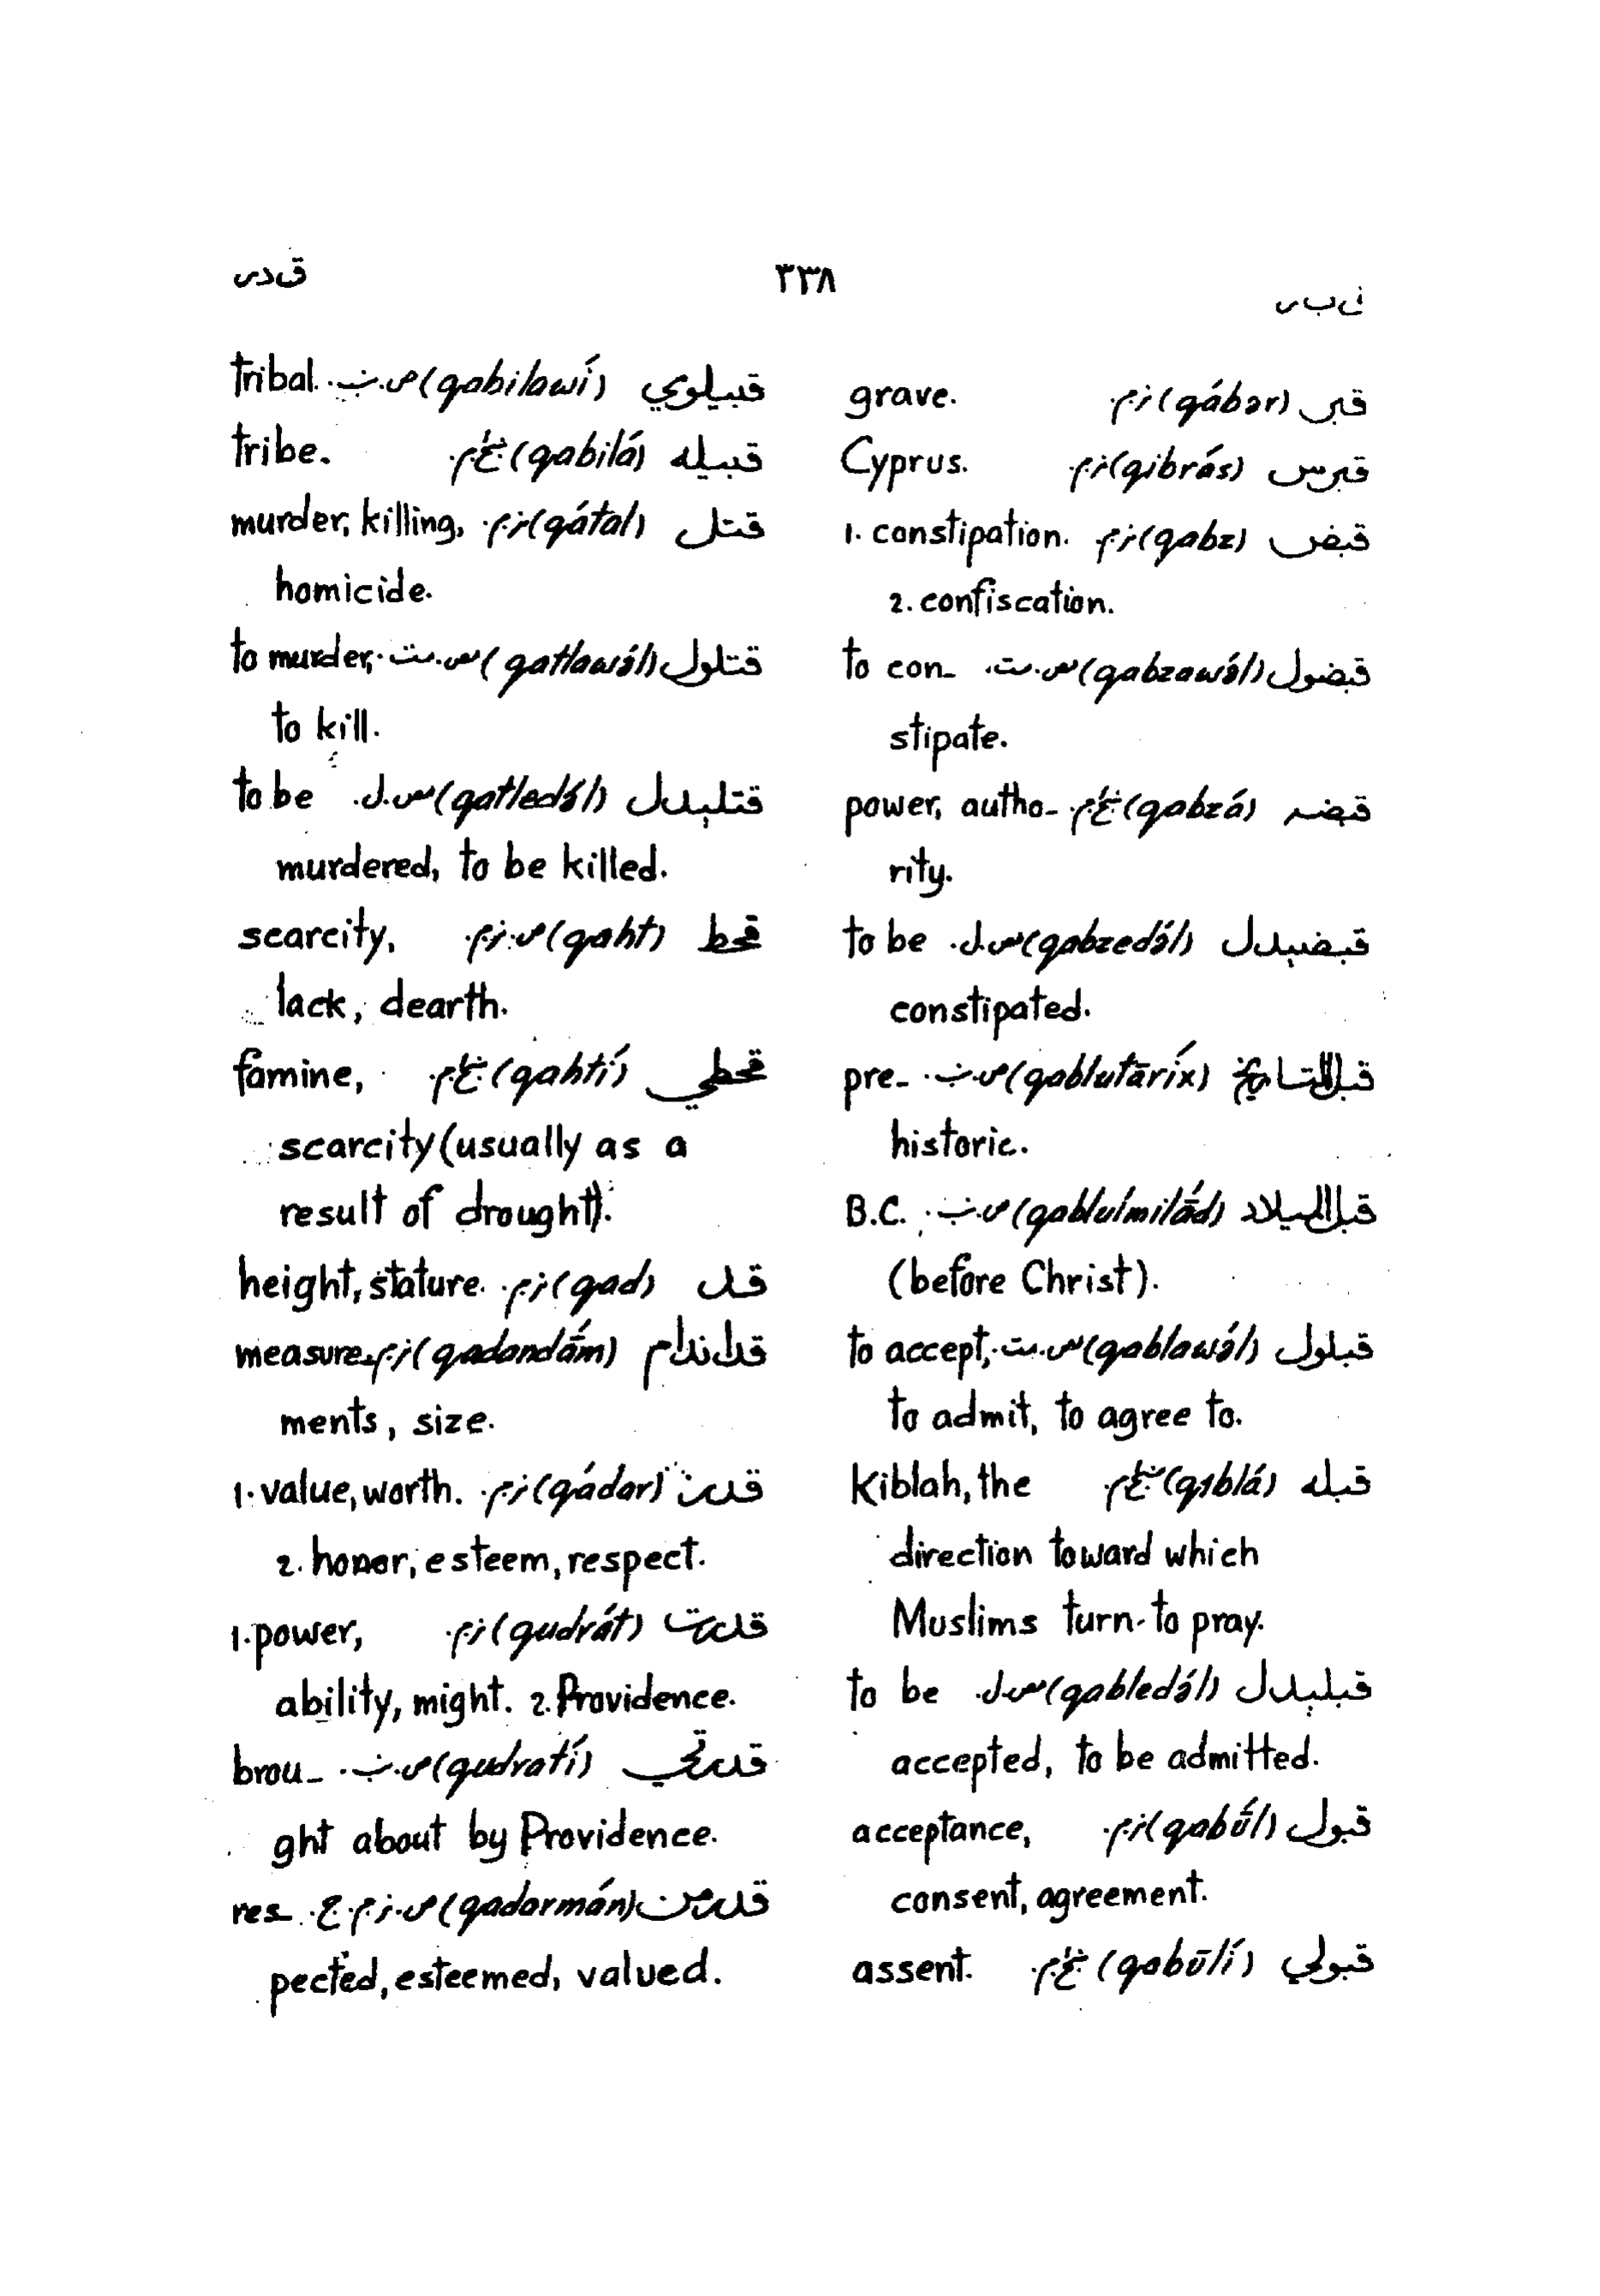 ق ب ر
٣٣٨
ق د ر
قبر (qábər) ن.م. grave.
قبرس (qibrás) ن.م. Cyprus.
قبض (qabz) ن.م. 1. constipation.
2. confiscation.
قبضول (qabzawə́l) س.مت. to con-
stipate.
قبضه (qabzá) غ.م. power, autho-
rity.
قبضېدل (qabzedə́l) س.ل. to be
constipated.
قبل التاريخ (qablutāríx) ص.ب. pre-
historic.
قبل الميلاد (qablulmilā́d) ص.ب. B.C.
(before Christ).
قبلول (qablawə́l) س.مت. to accept,
to admit, to agree to.
قبله (qiblá) غ.م. Kiblah, the
direction toward which
Muslims turn to pray.
قبلېدل (qabledə́l) س.ل. to be
accepted, to be admitted.
قبول (qabū́l) ن.م. acceptance,
consent, agreement.
قبولي (qabūlí) غ.م. assent.
قبيلوي (qabilawí) ص.ب. tribal.
قبيله (qabilá) غ.م. tribe.
قتل (qátal) ن.م. murder, killing,
homicide.
قتلول (qatlawə́l) س.مت. to murder,
to kill.
قتلېدل (qatledə́l) س.ل. to be
murdered, to be killed.
قحط (qaht) ص.ن.م. scarcity,
lack, dearth.
قحطي (qahtí) غ.م. famine,
scarcity (usually as a
result of drought).
قد (qad) ن.م. height, stature.
قداندام (qadandā́m) ن.م. measure-
ments, size.
قدر (qádar) ن.م. 1. value, worth.
2. honor, esteem, respect.
قدرت (qudrát) ن.م. 1. power,
ability, might. 2. Providence.
قدرتي (qudratí) ص.ب. brou-
ght about by Providence.
قدرمن (qadarmán) ص.ن.م.ج. res-
pected, esteemed, valued.